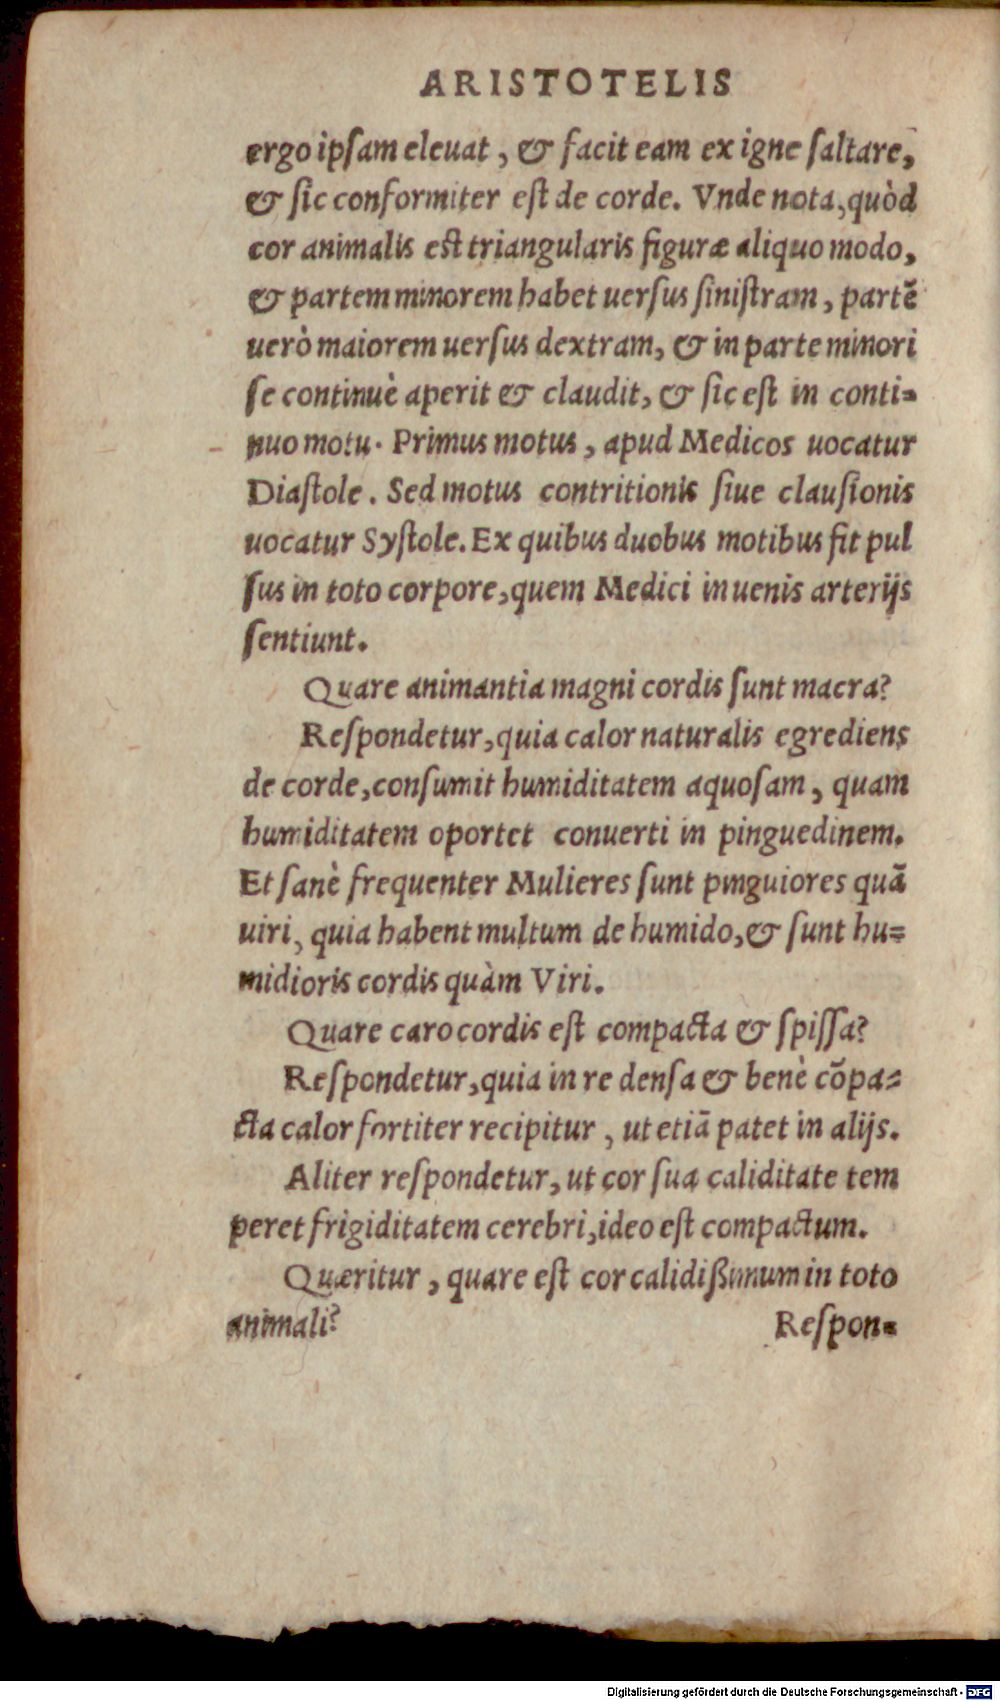 ARISTOTELIS
ergo ipſam eleuat, & facit eam ex igne ſaltare,
& ſic conformiter eſt de corde. Vnde nota, quòd
cor animalis est triangularis figuræ aliquo modo,
& partem minorem habet uerſus ſiniſtram, partē
uerò maiorem uerſus dextram, & in parte minori
ſe continuè aperit & claudit, & ſic eſt in conti-
nuo motu. Primus motus, apud Medicos uocatur
Diaſtole. Sed motus contritionis ſiue clauſionis
uocatur Syſtole. Ex quibus duobus motibus fit pul
ſus in toto corpore, quem Medici in uenis arterijs
ſentiunt.
Quare animantia magni cordis ſunt macra?
Reſpondetur, quia calor naturalis egrediens
de corde, conſumit humiditatem aquoſam, quam
humiditatem oportet conuerti in pinguedinem.
Et ſanè frequenter Mulieres ſunt pinguiores quā
uiri, quia habent multum de humido, & ſunt hu-
midioris cordis quàm Viri.
Quare caro cordis eſt compacta & ſpiſſa?
Reſpondetur, quia in re denſa & benè cōpa-
cta calor fortiter recipitur, ut etiā patet in alijs.
Aliter reſpondetur, ut cor ſua caliditate tem
peret frigiditatem cerebri, ideo eſt compactum.
Quæritur, quare eſt cor calidißimum in toto
animali? Reſpon-
Digitalisierung gefördert durch die Deutsche Forschungsgemeinschaft - DFG